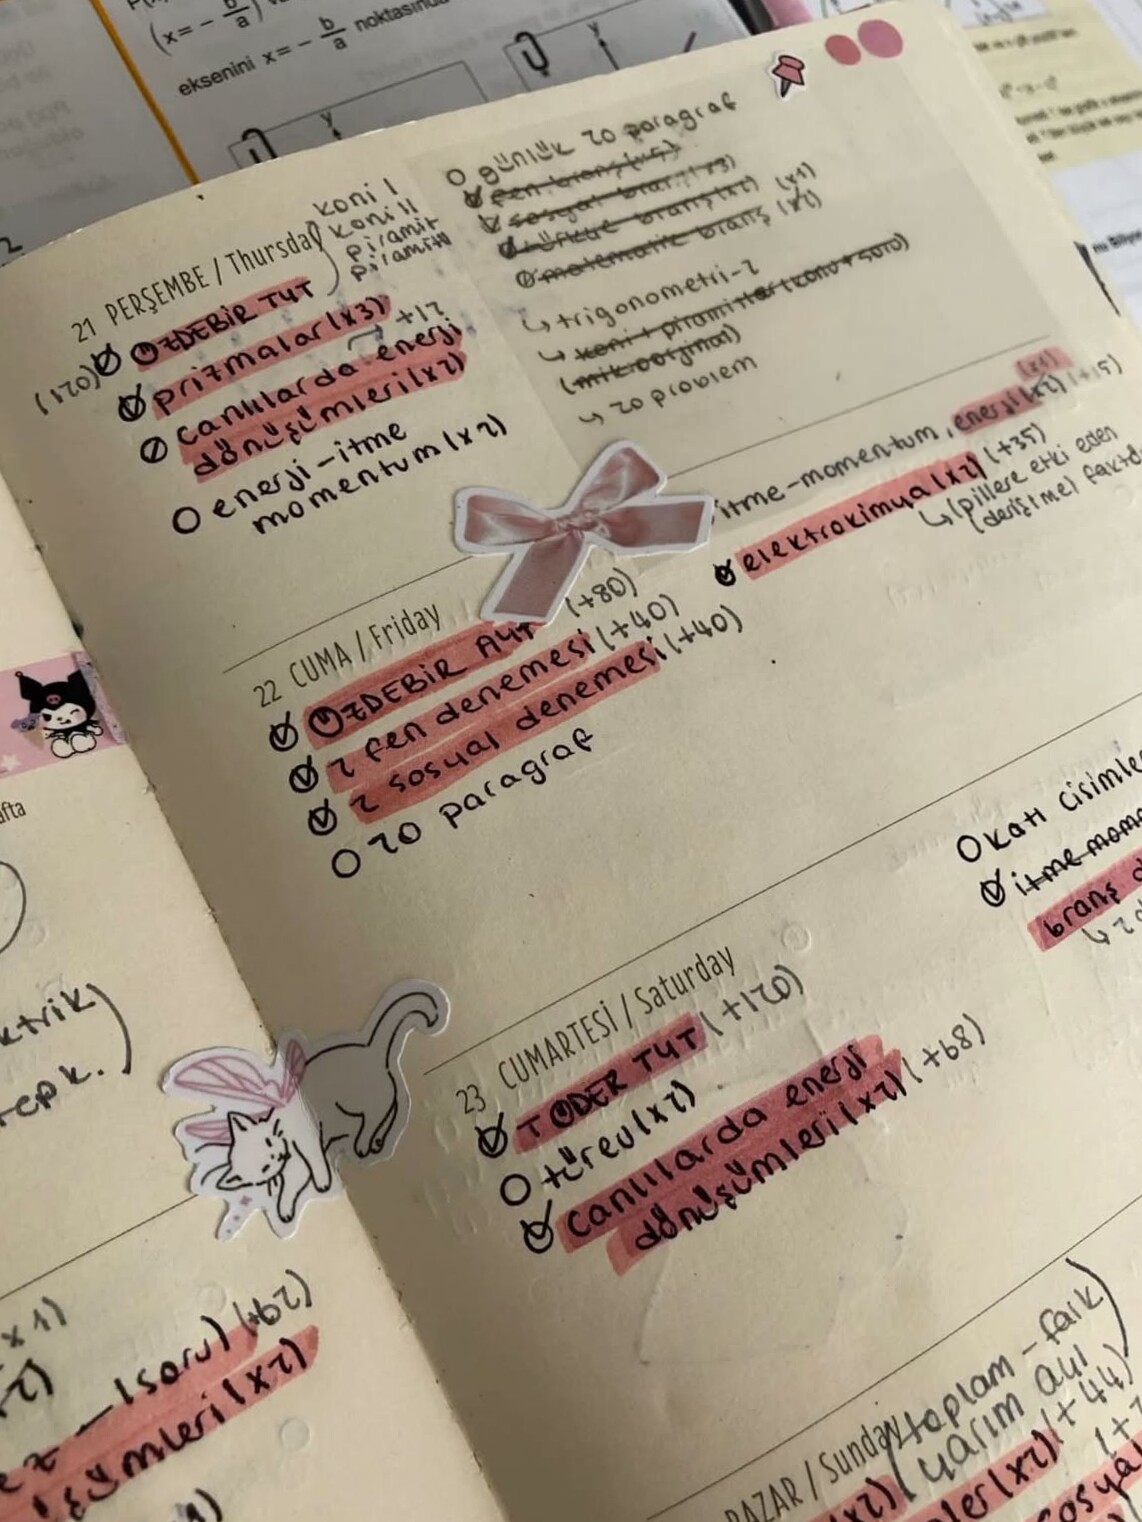 (x = - b/a)
eksenini x = - b/a noktasında
21 PERŞEMBE / Thursday
koni I
koni II
piramit
piramit II
(120) ÖZDEBİR TYT
prizmalar (x3)
+12
canlılarda enerji
dönüşümleri (x2)
enerji-itme
momentum (x2)
günlük 20 paragraf
fen branş (x5)
sosyal branş (x3)
türkçe branş (x2) (x1)
matematik branş (x2)
↳ trigonometri-2
↳ koni + piramitler (konu + soru)
(mikroorjinal)
↳ 20 problem
(x1)
itme-momentum, enerji (x2) (+15)
elektrokimya (x2) (+35)
↳ (pillere etki eden
(derişime) faktö
22 CUMA / Friday
ÖZDEBİR AYT (+80)
2 fen denemesi (+40)
2 sosyal denemesi (+40)
20 paragraf
katı cisimle
itme mome
branş d
↳ 2 d
23 CUMARTESİ / Saturday
TÖDER TYT (+120)
türev (x2)
canlılarda enerji
dönüşümleri (x2) (+68)
PAZAR / Sunday
toplam - faik)
yarım ayı
(x2)
ler (x2) (+44)
sosya
afta
ktrik)
tepk.)
x1)
(soru) (+62)
şümleri (x2)